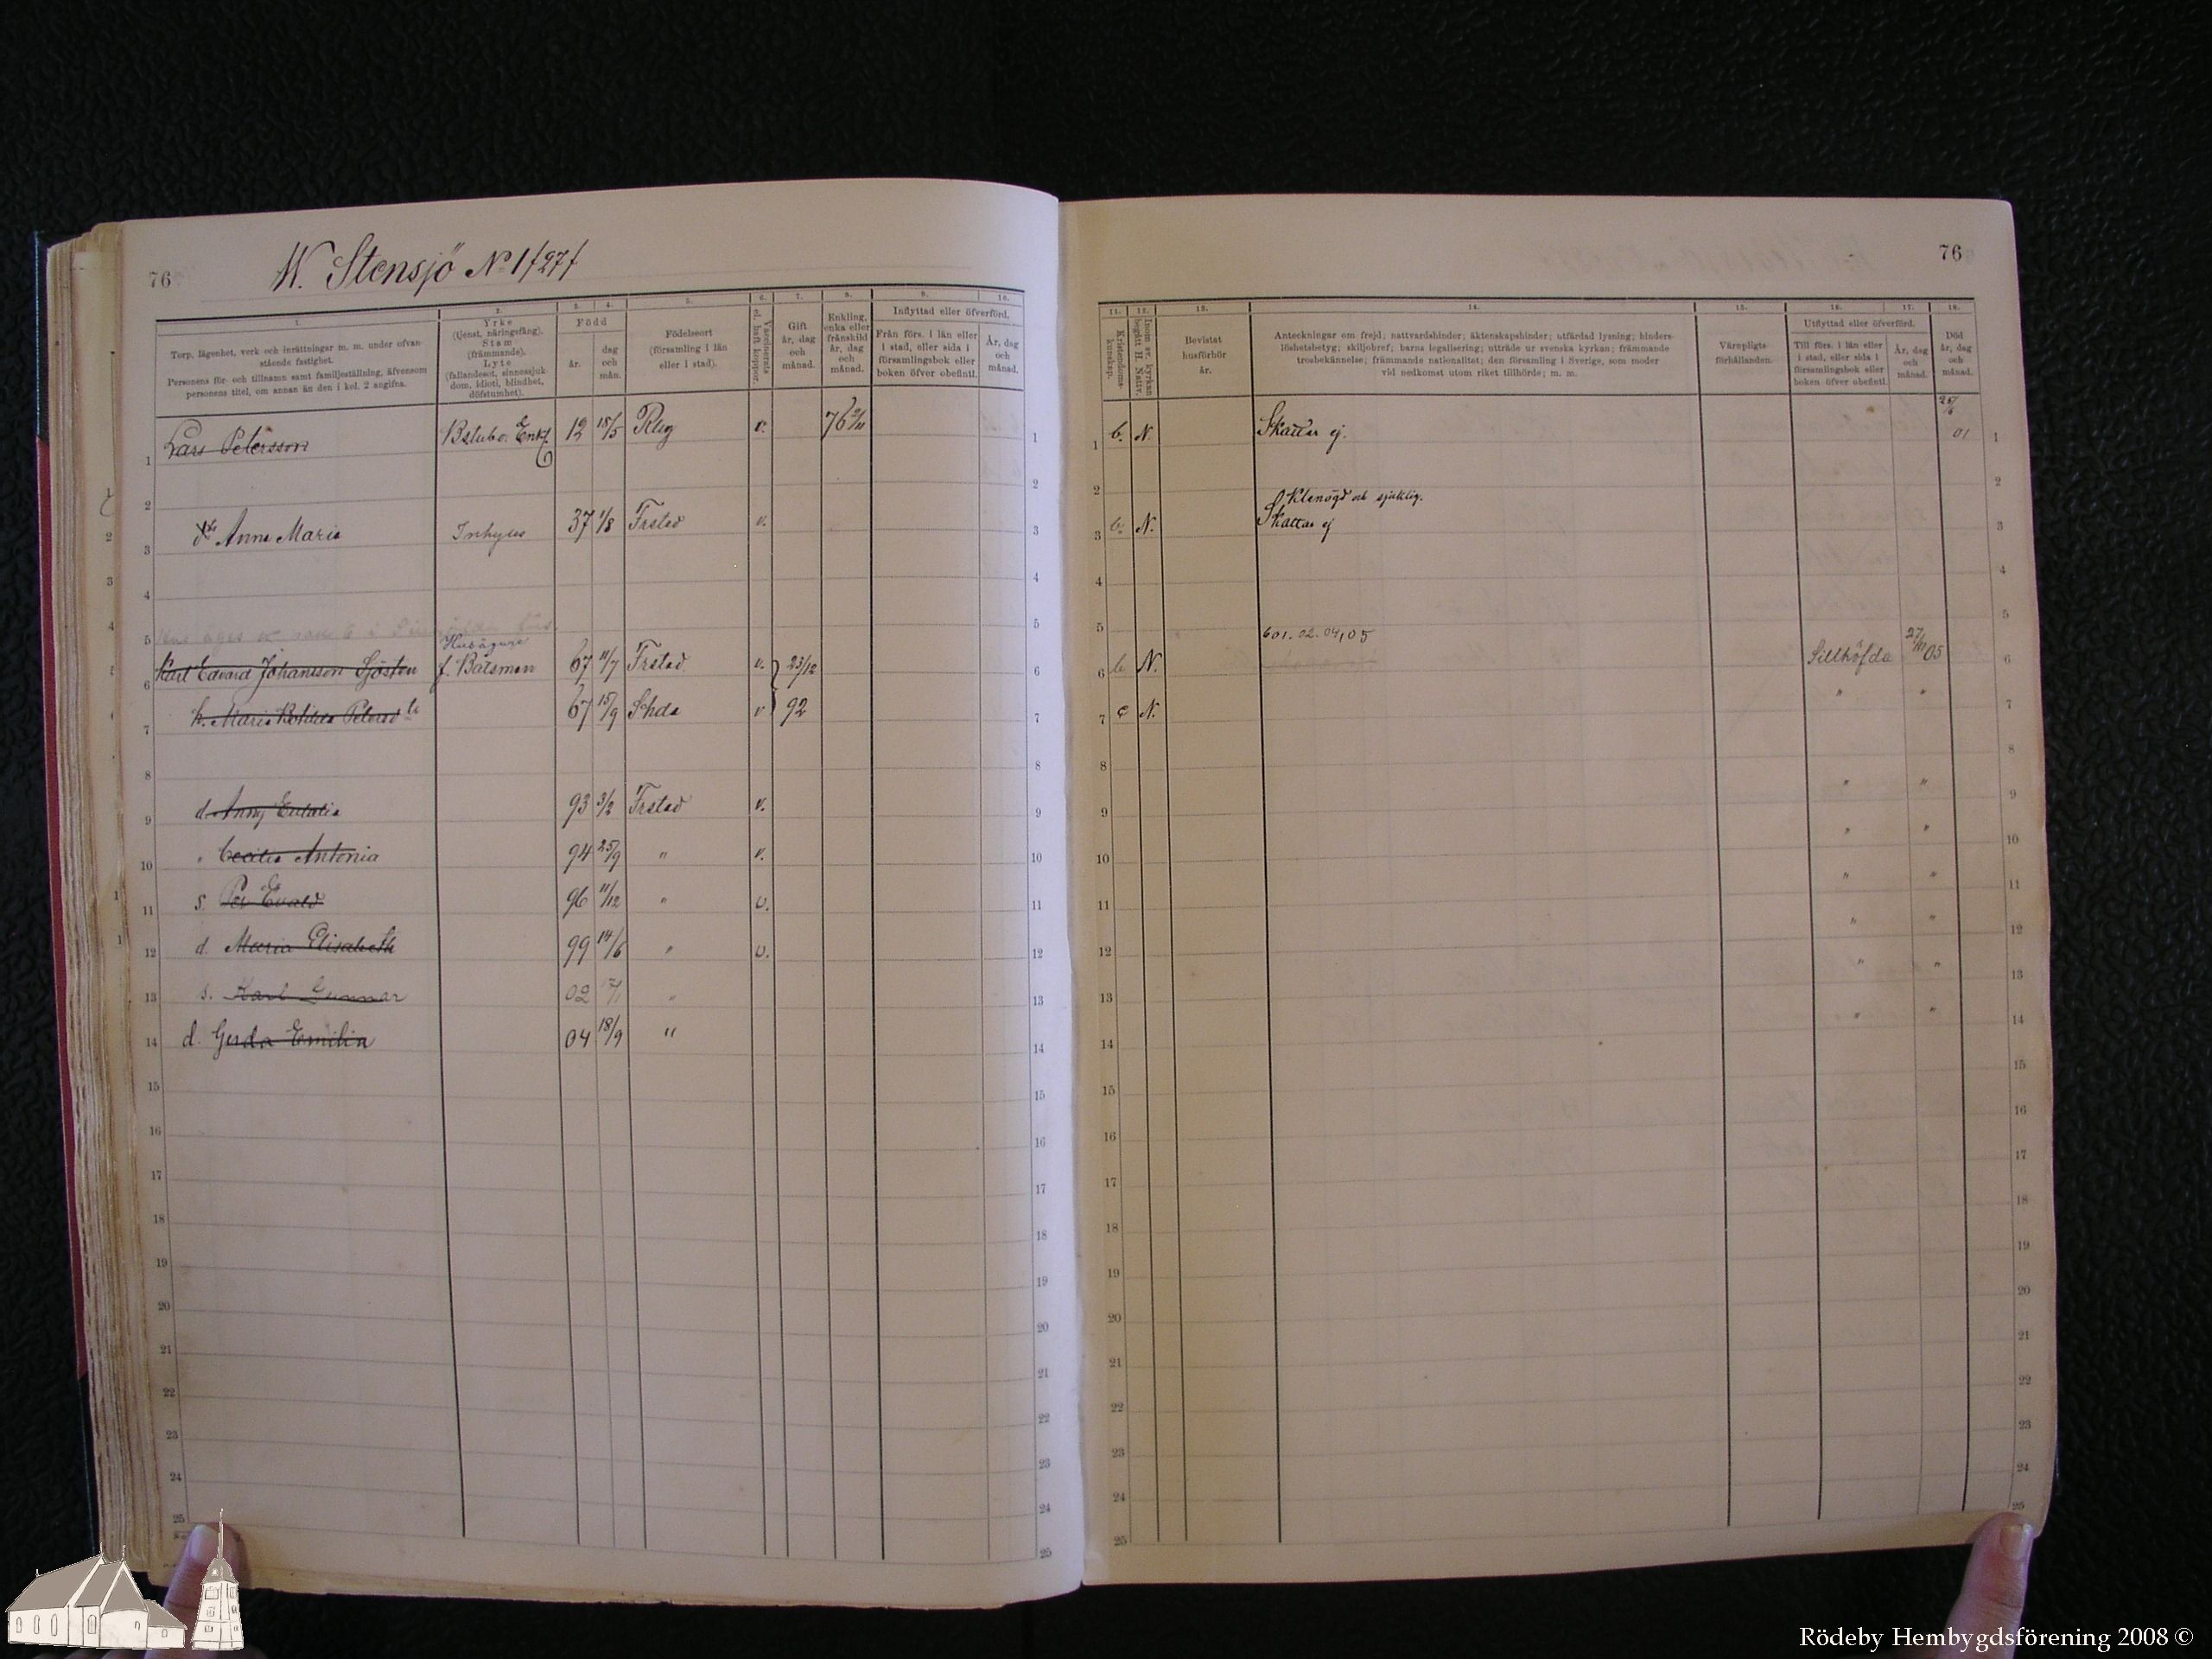 76
W. Stensjö No 1 /27/
1.
2.
3.
4.
5.
6.
7.
8.
9.
10.
Torp, lägenhet, verk och inrättningar m. m. under ofvan-
stående fastighet.
Personens för- och tillnamn samt familjeställning, äfvensom
personens titel, om annan än den i kol. 2 angifna.
Yrke
(tjenst, näringsfång).
Stam
(främmande).
Lyte
(fallandesot, sinnessjuk-
dom, idioti, blindhet,
döfstumhet).
Född
år.
dag
och
mån.
Födelseort
(församling i län
eller i stad).
Vaccinerats
el. haft koppor.
Gift
år, dag
och
månad.
Enkling,
enka eller
frånskild
år, dag
och
månad.
Inflyttad eller öfverförd.
Från förs. i län eller
i stad, eller sida i
församlingsbok eller
boken öfver obefintl.
År, dag
och
månad.
1 Lars Petersson 12 18/5 v. 76 1
2 2
3 Anna Maria Inhyses 37 1/8 Frsted v. 3
4 4
5 5
Husägare
6 Karl Edvard Johansson Sjösten f. Båtsman 67 11/7 Frsted v. 23/12 6
7 h. Maria 67 15/9 v 92 7
8 8
9 d. Anny Eulalia 93 3/2 Frsted v. 9
10 " Cecilia Antonia 94 25/9 " v. 10
11 s. Per Evald 96 11/12 " v. 11
12 d. Maria Elisabeth 99 14/6 " v. 12
13 s. Karl Gunnar 02 " 13
14 d. Gerda Emilia 04 18/9 " 14
15 15
16 16
17 17
18 18
19 19
20 20
21 21
22 22
23 23
24 24
25 25
76
11.
12.
13.
14.
15.
16.
17.
18.
Kristendoms-
kunskap.
Inom sv. kyrkan
begått H. Nattv.
Bevistat
husförhör
år.
Anteckningar om frejd; nattvardshinder; äktenskapshinder; utfärdad lysning; hinders-
löshetsbetyg; skiljobref; barns legalisering; utträde ur svenska kyrkan; främmande
trosbekännelse; främmande nationalitet; den församling i Sverige, som moder
vid nedkomst utom riket tillhörde; m. m.
Värnpligts-
förhållanden.
Utflyttad eller öfverförd.
Till förs. i län eller
i stad, eller sida i
församlingsbok eller
boken öfver obefintl.
År, dag
och
månad.
Död
år, dag
och
månad.
1 b. N. Skattar ej. 01 1
2 Klenögd och sjuklig. 2
3 b. N. Skattar ej 3
4 4
5 601. 02. 04, 05 5
6 b. N. Sillhöfda 27/11 05 6
7 c N. " " 7
8 8
9 " " 9
10 " " 10
11 " " 11
12 " " 12
13 " " 13
14 " " 14
15 15
16 16
17 17
18 18
19 19
20 20
21 21
22 22
23 23
24 24
25 25
Rödeby Hembygdsförening 2008 ©